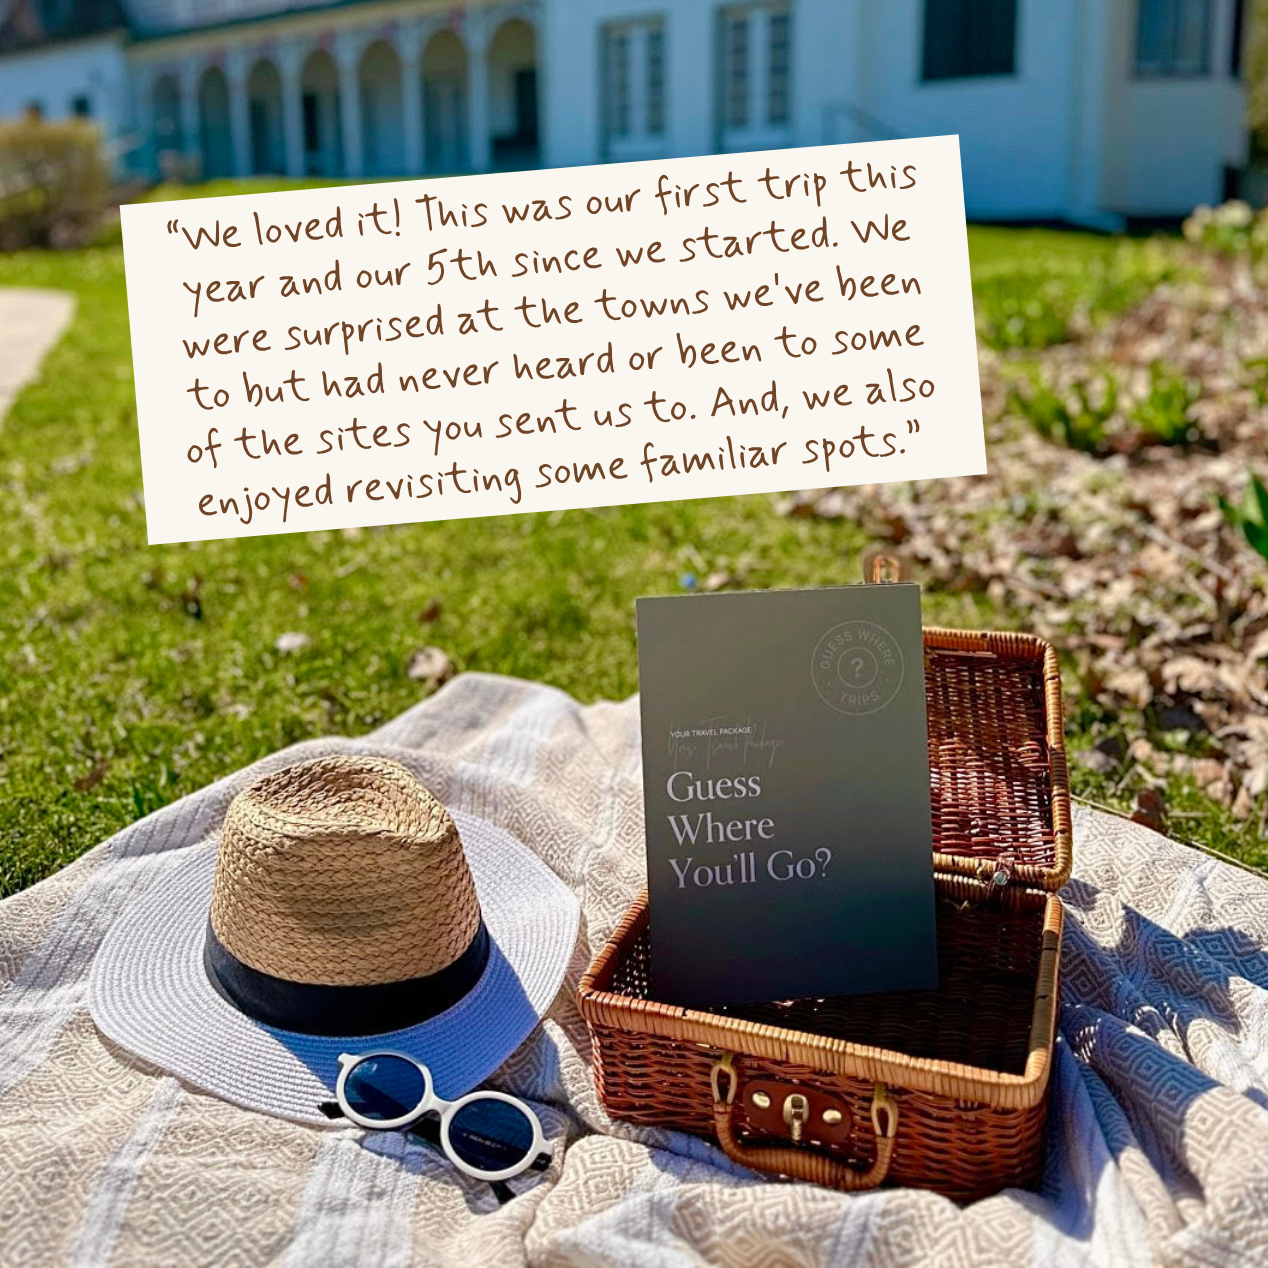 “We loved it! This was our first trip this
year and our 5th since we started. We
were surprised at the towns we've been
to but had never heard or been to some
of the sites you sent us to. And, we also
enjoyed revisiting some familiar spots.”
GUESS WHERE
?
TRIPS
YOUR TRAVEL PACKAGE
Your Travel Package
Guess
Where
You'll Go?